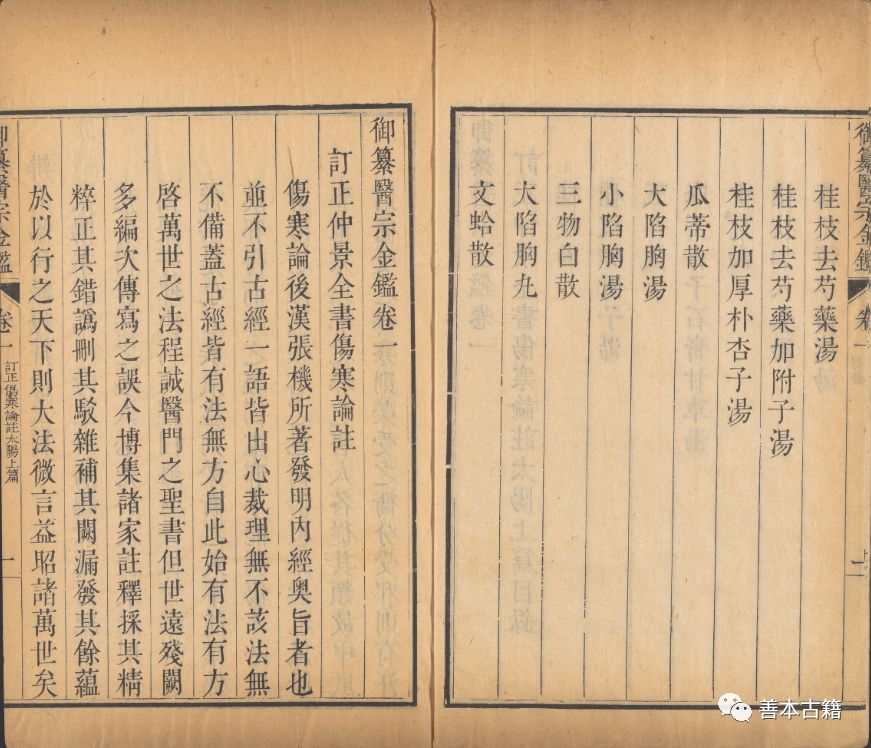 御纂醫宗金鑑
卷一
桂枝去芍藥湯
桂枝去芍藥加附子湯
桂枝加厚朴杏子湯
瓜蒂散
大陷胸湯
小陷胸湯
三物白散
大陷胸丸
文蛤散
御纂醫宗金鑑卷一
訂正仲景全書傷寒論註
傷寒論後漢張機所著發明內經奧旨者也
並不引古經一語皆出心裁理無不該法無
不備蓋古經皆有法無方自此始有法有方
啓萬世之法程誠醫門之聖書但世遠殘闕
多編次傳寫之誤今博集諸家註釋採其精
粹正其錯譌刪其駁雜補其闕漏發其餘蘊
於以行之天下則大法微言益昭諸萬世矣
御纂醫宗金鑑
卷一
訂正傷寒論註太陽上篇
一
善本古籍